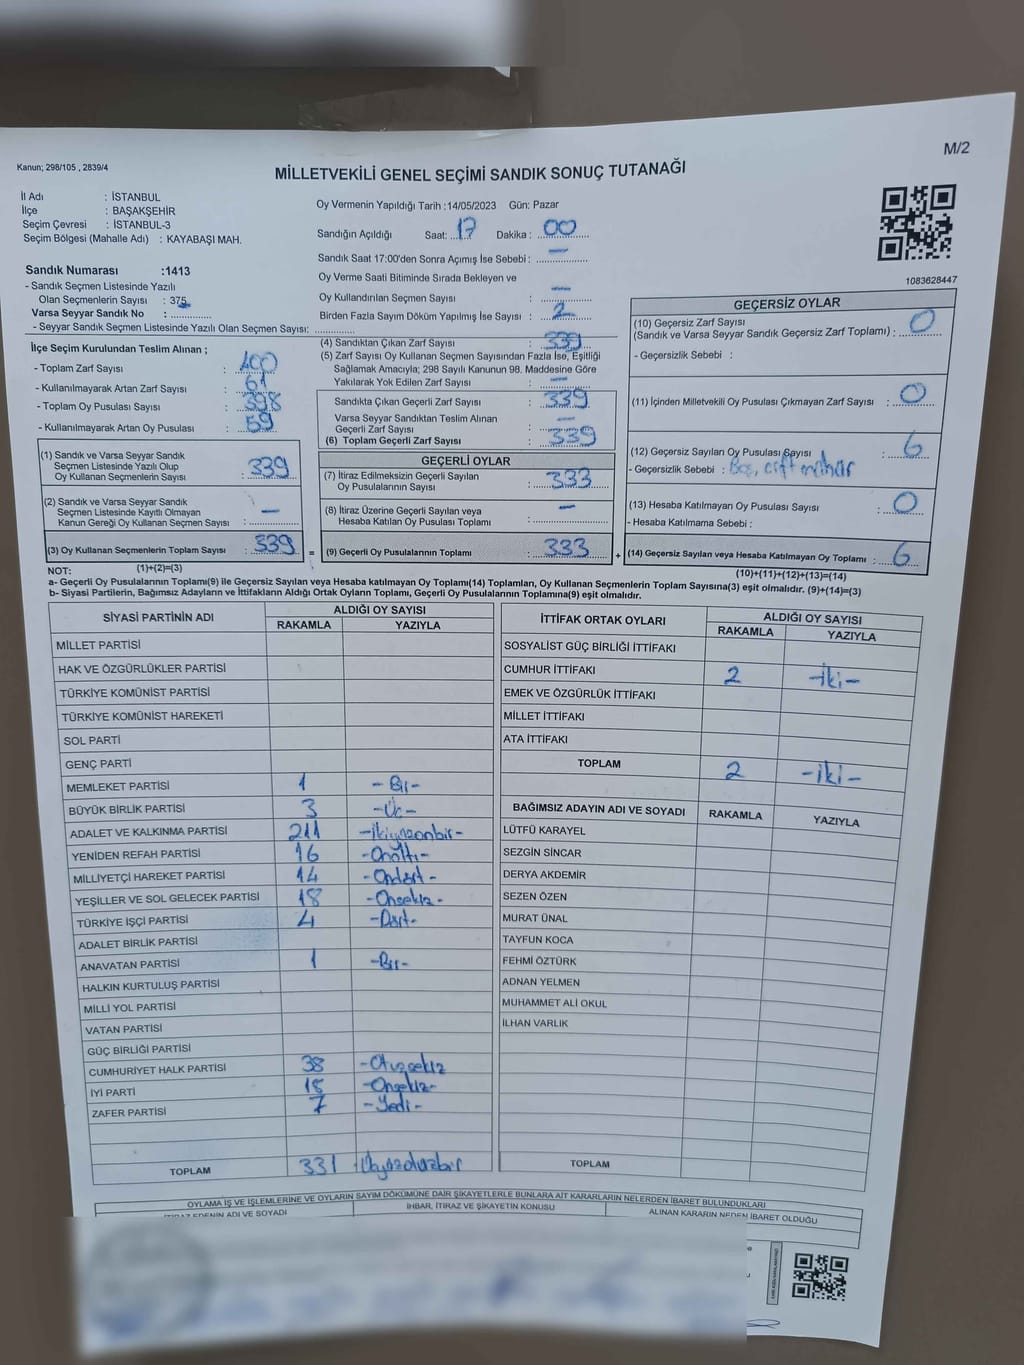 M/2
Kanun; 298/105 , 2839/4
MİLLETVEKİLİ GENEL SEÇİMİ SANDIK SONUÇ TUTANAĞI
İl Adı : İSTANBUL
İlçe : BAŞAKŞEHİR
Seçim Çevresi : İSTANBUL-3
Seçim Bölgesi (Mahalle Adı) : KAYABAŞI MAH.
Sandık Numarası :1413
- Sandık Seçmen Listesinde Yazılı
Olan Seçmenlerin Sayısı : 375
Varsa Seyyar Sandık No :
- Seyyar Sandık Seçmen Listesinde Yazılı Olan Seçmen Sayısı:
Oy Vermenin Yapıldığı Tarih :14/05/2023 Gün: Pazar
Sandığın Açıldığı Saat: 17 Dakika : 00
Sandık Saat 17:00'den Sonra Açımış İse Sebebi : —
Oy Verme Saati Bitiminde Sırada Bekleyen ve
Oy Kullandırılan Seçmen Sayısı : —
Birden Fazla Sayım Döküm Yapılmış İse Sayısı : 2
1083628447
İlçe Seçim Kurulundan Teslim Alınan ;
- Toplam Zarf Sayısı : 400
- Kullanılmayarak Artan Zarf Sayısı : 61
- Toplam Oy Pusulası Sayısı : 398
- Kullanılmayarak Artan Oy Pusulası : 59
(1) Sandık ve Varsa Seyyar Sandık
Seçmen Listesinde Yazılı Olup
Oy Kullanan Seçmenlerin Sayısı : 339
(2) Sandık ve Varsa Seyyar Sandık
Seçmen Listesinde Kayıtlı Olmayan
Kanun Gereği Oy Kullanan Seçmen Sayısı : —
(3) Oy Kullanan Seçmenlerin Toplam Sayısı : 339
(1)+(2)=(3)
(4) Sandıktan Çıkan Zarf Sayısı : 339
(5) Zarf Sayısı Oy Kullanan Seçmen Sayısından Fazla İse, Eşitliği
Sağlamak Amacıyla; 298 Sayılı Kanunun 98. Maddesine Göre
Yakılarak Yok Edilen Zarf Sayısı : —
Sandıkta Çıkan Geçerli Zarf Sayısı : 339
Varsa Seyyar Sandıktan Teslim Alınan
Geçerli Zarf Sayısı : —
(6) Toplam Geçerli Zarf Sayısı : 339
GEÇERLİ OYLAR
(7) İtiraz Edilmeksizin Geçerli Sayılan
Oy Pusulalarının Sayısı : 333
(8) İtiraz Üzerine Geçerli Sayılan veya
Hesaba Katılan Oy Pusulası Toplamı : —
= (9) Geçerli Oy Pusulalarının Toplamı : 333
GEÇERSİZ OYLAR
(10) Geçersiz Zarf Sayısı
(Sandık ve Varsa Seyyar Sandık Geçersiz Zarf Toplamı) : 0
- Geçersizlik Sebebi :
(11) İçinden Milletvekili Oy Pusulası Çıkmayan Zarf Sayısı : 0
(12) Geçersiz Sayılan Oy Pusulası Sayısı : 6
- Geçersizlik Sebebi : Boş, çift mühür
(13) Hesaba Katılmayan Oy Pusulası Sayısı : 0
- Hesaba Katılmama Sebebi :
+ (14) Geçersiz Sayılan veya Hesaba Katılmayan Oy Toplamı : 6
(10)+(11)+(12)+(13)=(14)
NOT:
a- Geçerli Oy Pusulalarının Toplamı(9) ile Geçersiz Sayılan veya Hesaba katılmayan Oy Toplamı(14) Toplamları, Oy Kullanan Seçmenlerin Toplam Sayısına(3) eşit olmalıdır. (9)+(14)=(3)
b- Siyasi Partilerin, Bağımsız Adayların ve İttifakların Aldığı Ortak Oyların Toplamı, Geçerli Oy Pusulalarının Toplamına(9) eşit olmalıdır.
SİYASİ PARTİNİN ADI ALDIĞI OY SAYISI
RAKAMLA YAZIYLA
MİLLET PARTİSİ
HAK VE ÖZGÜRLÜKLER PARTİSİ
TÜRKİYE KOMÜNİST PARTİSİ
TÜRKİYE KOMÜNİST HAREKETİ
SOL PARTİ
GENÇ PARTİ
MEMLEKET PARTİSİ 1 -Bir-
BÜYÜK BİRLİK PARTİSİ 3 -Üç-
ADALET VE KALKINMA PARTİSİ 211 -ikiyüzonbir-
YENİDEN REFAH PARTİSİ 16 -Onaltı-
MİLLİYETÇİ HAREKET PARTİSİ 14 -Ondört-
YEŞİLLER VE SOL GELECEK PARTİSİ 18 -Onsekiz-
TÜRKİYE İŞÇİ PARTİSİ 4 -Dört-
ADALET BİRLİK PARTİSİ
ANAVATAN PARTİSİ 1 -Bir-
HALKIN KURTULUŞ PARTİSİ
MİLLİ YOL PARTİSİ
VATAN PARTİSİ
GÜÇ BİRLİĞİ PARTİSİ
CUMHURİYET HALK PARTİSİ 38 -Otuzsekiz
İYİ PARTİ 18 -Onsekiz-
ZAFER PARTİSİ 7 -Yedi-
TOPLAM 331 Üçyüzotuzbir
İTTİFAK ORTAK OYLARI ALDIĞI OY SAYISI
RAKAMLA YAZIYLA
SOSYALİST GÜÇ BİRLİĞİ İTTİFAKI
CUMHUR İTTİFAKI 2 -İki-
EMEK VE ÖZGÜRLÜK İTTİFAKI
MİLLET İTTİFAKI
ATA İTTİFAKI
TOPLAM 2 -iki-
BAĞIMSIZ ADAYIN ADI VE SOYADI RAKAMLA YAZIYLA
LÜTFÜ KARAYEL
SEZGİN SİNCAR
DERYA AKDEMİR
SEZEN ÖZEN
MURAT ÜNAL
TAYFUN KOCA
FEHMİ ÖZTÜRK
ADNAN YELMEN
MUHAMMET ALİ OKUL
İLHAN VARLIK
TOPLAM
OYLAMA İŞ VE İŞLEMLERİNE VE OYLARIN SAYIM DÖKÜMÜNE DAİR ŞİKAYETLERLE BUNLARA AİT KARARLARIN NELERDEN İBARET BULUNDUKLARI
İTİRAZ EDENİN ADI VE SOYADI İHBAR, İTİRAZ VE ŞİKAYETİN KONUSU ALINAN KARARIN NEDEN İBARET OLDUĞU